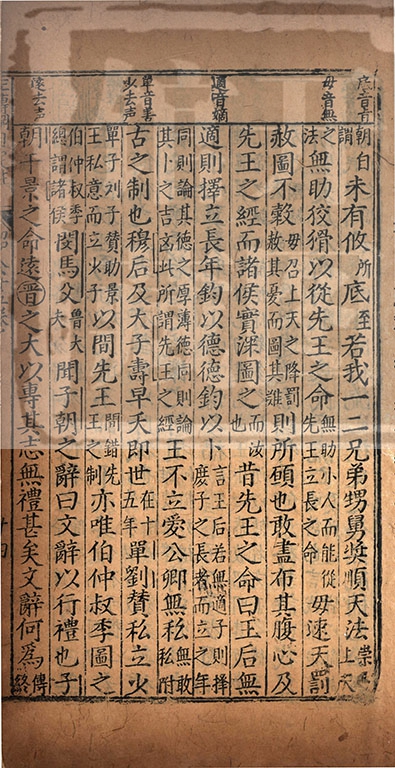 底音旨
毋音無
適音嫡
單音善
少去声
遠去声
朝自謂未有攸所底至若我一二兄弟甥舅奬順天法崇上天
之法無助狡猾以從先王之命無助小人而能從先王立長之命毋速天罰
赦圖不穀毋召上天之降罰赦其憂而圖其難則所願也敢盡布其腹心及
先王之經而諸侯實深圖之而汝也昔先王之命曰王后無
適則擇立長年鈞以德德鈞以卜言王后若無適子則擇庶子之長者而立之年
同則論其德之厚薄德同則論其卜之吉凶此所謂先王之經王不立愛公卿無私無敢私附
古之制也穆后及大子壽早夭即世在十五年單劉贊私立少
單子劉子贊助景王私意而立少子以間先王間錯先王之制亦唯伯仲叔季圖之
伯仲叔季總謂諸侯閔馬父魯大夫聞子朝之辭曰文辭以行禮也子
朝干景之命遠晋之大以專其志無禮甚矣文辭何爲傳終